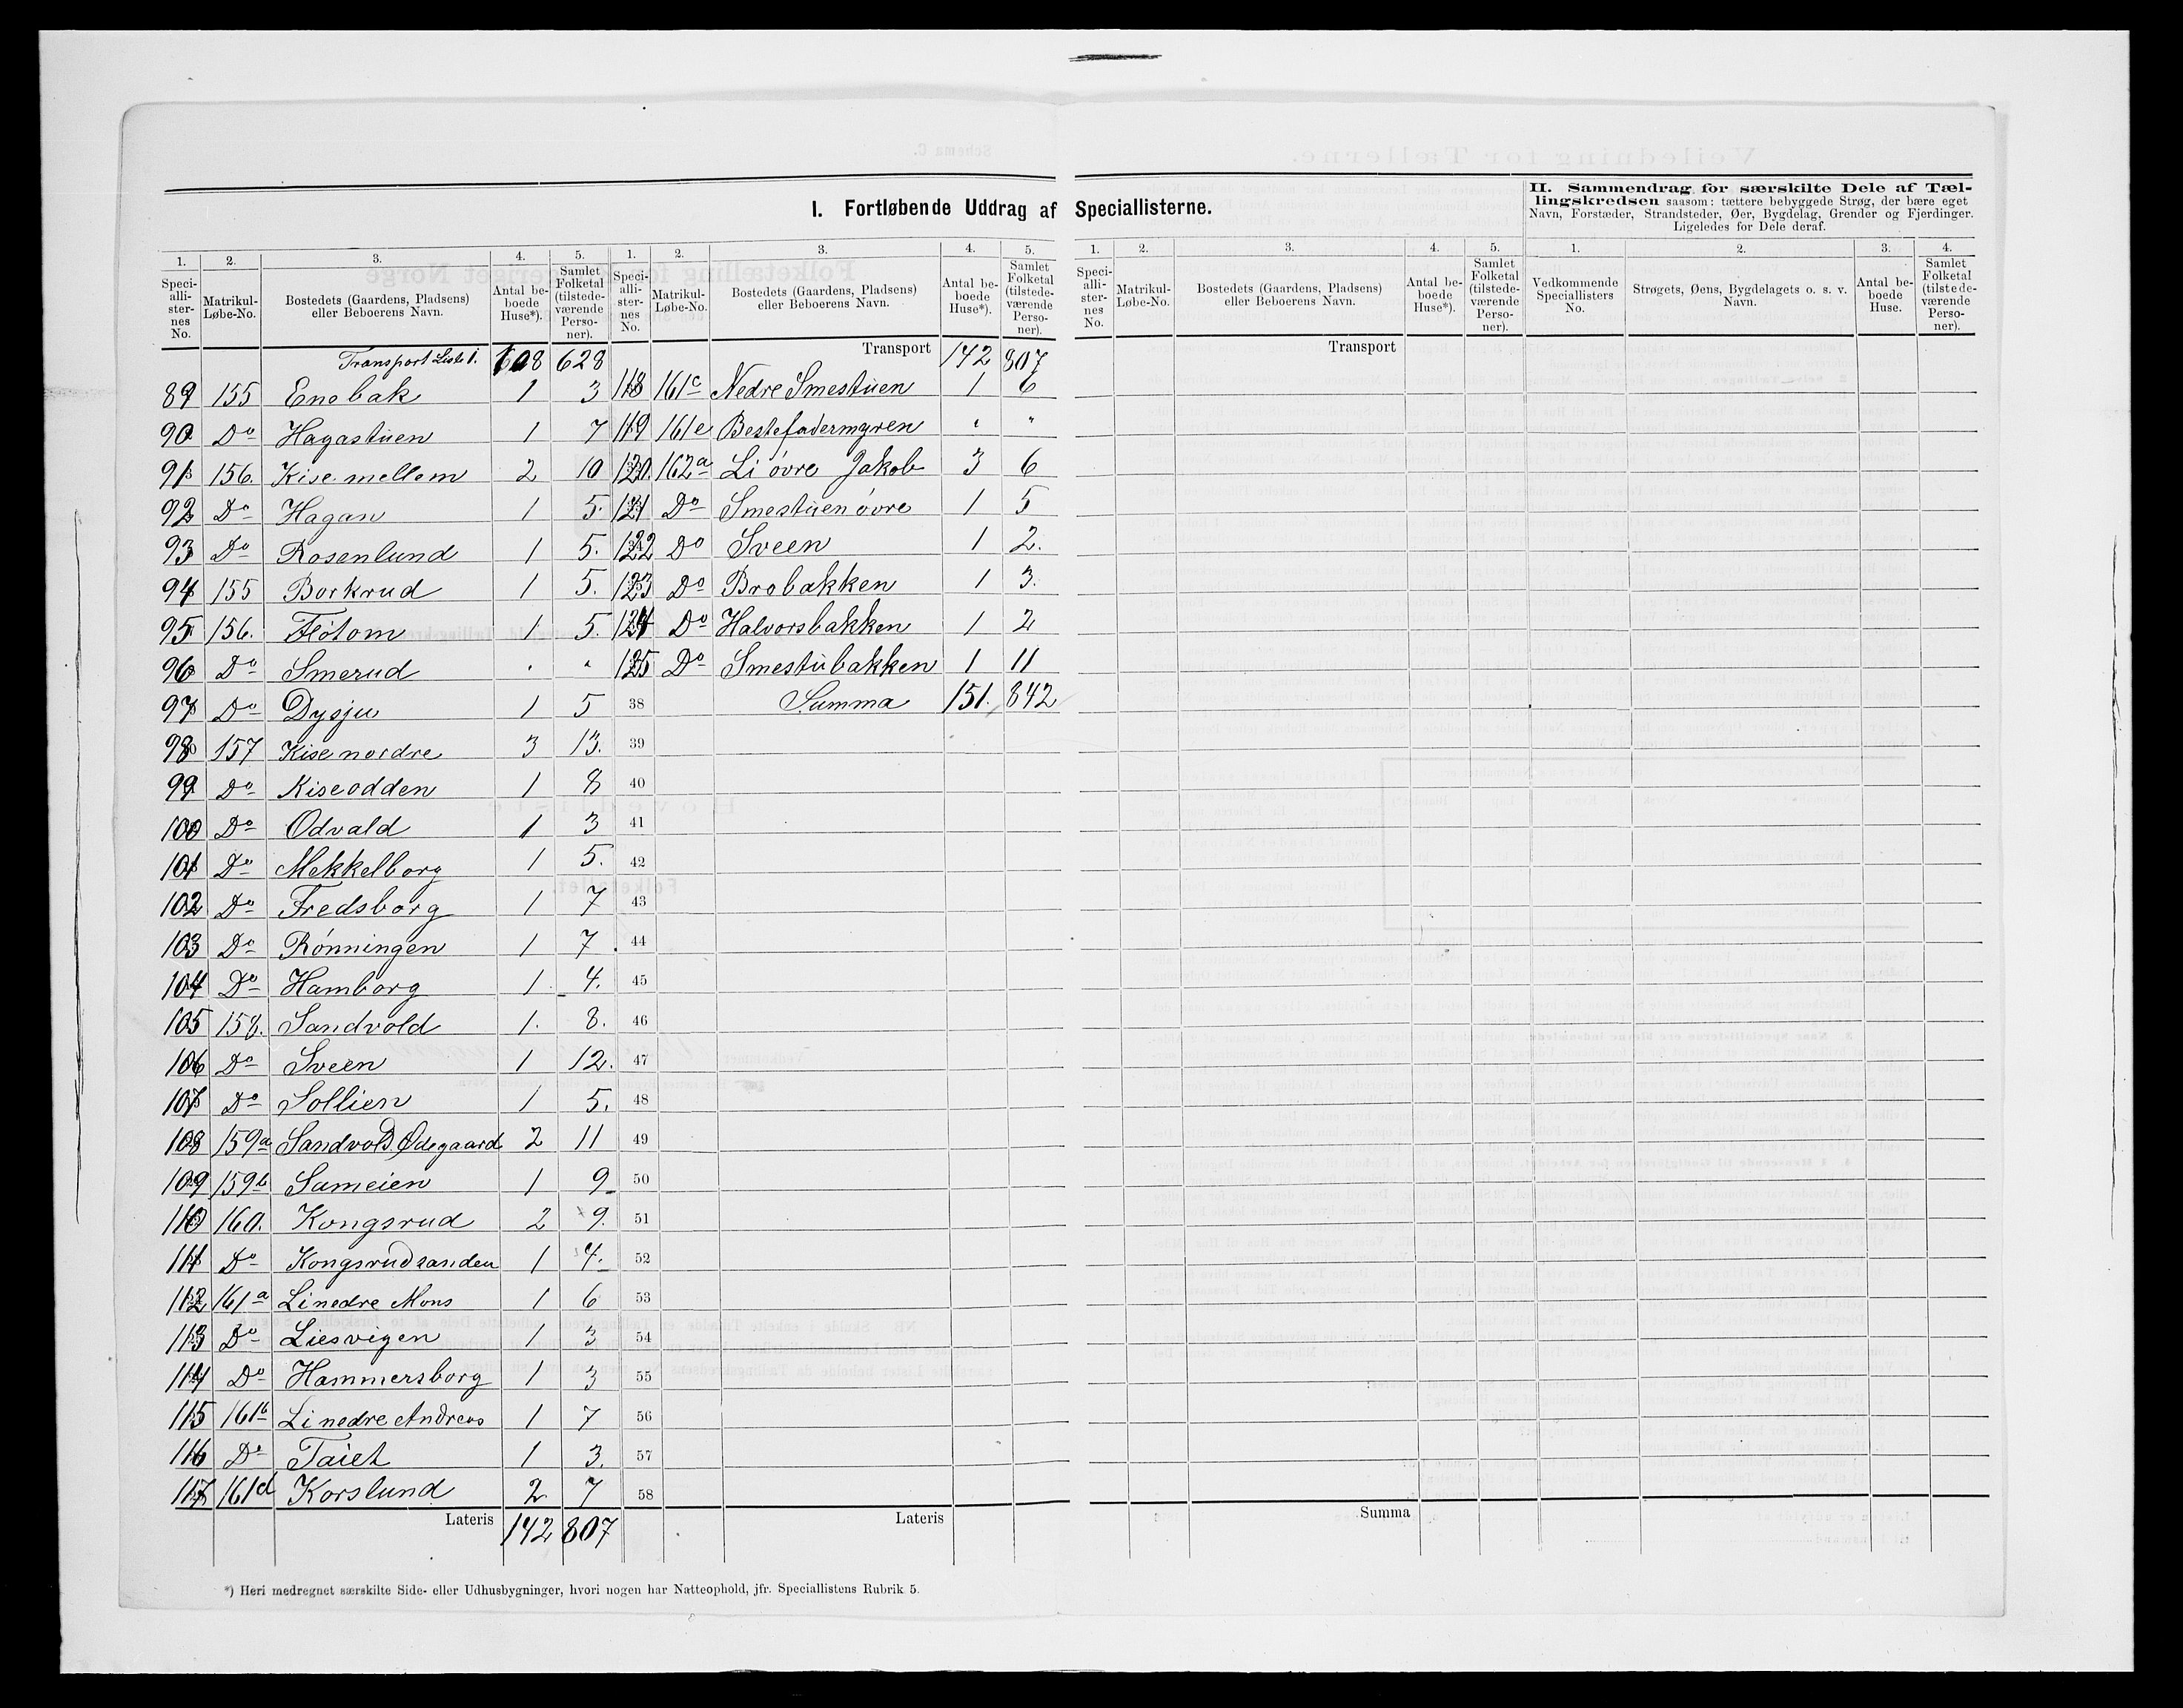 I. Fortløbende Uddrag af Speciallisterne.
II. Sammendrag for særskilte Dele af Tæl-
lingskredsen saasom: tættere bebyggede Strøg, der bære eget
Navn, Forstæder, Strandsteder, Øer, Bygdelag, Grender og Fjerdinger.
Ligeledes for Dele deraf.
1. 2. 3. 4. 5.
Speci-alli-ster-nes No. Matrikul-Løbe-No. Bostedets (Gaardens, Pladsens) eller Beboerens Navn. Antal be-boede Huse*). Samlet Folketal (tilstede-værende Perso-ner).
Transport Liste 1. 108 628
89 155 Enebak 1 3
90 Do Hagastuen 1 7
91 156. Kise mellem 2 10
92 Do Hagan 1 5.
93 Do Rosenlund 1 5.
94 155 Borkrud 1 5.
95 156. Fløtom 1 5.
96 Do Smerud " "
97 Do Dysju 1 5
98 157 Kise nordre 3 13.
99 Do Kiseodden 1 8
100 Do Odvald 1 3
101 Do Mekkelborg 1 5.
102 Do Fredsborg 1 7
103 Do Rønningen 1 7.
104 Do Hamborg 1 4.
105 158. Sandvold 1. 8.
106 Do Sveen 1 12.
107 Do Sollien 1 5.
108 159a Sandvold Ødegaard 2 11
109 159b Sameien 1 9
110 160. Kongsrud 2 9.
111 Do Kongsrudsanden 1 4.
112 161a Li nedre Mons 1 6
113 Do Liesvigen 1 3
114 Do Hammersborg 1 3
115 161b Li nedre Andreas 1 7
116 Do Taiet 1 3.
117 161d Korslund 2 7
Lateris 142 807
1. 2. 3. 4. 5.
Speci-alli-ster-nes No. Matrikul-Løbe-No. Bostedets (Gaardens, Pladsens) eller Beboerens Navn. Antal be-boede Huse*). Samlet Folketal (tilstede-værende Perso-ner).
Transport 142 807
118 161c Nedre Smestuen 1 6
119 161e Bestefadermyren " "
120. 162a Li øvre Jakob 3 6
121 Do Smestuen øvre 1 5
122 Do Sveen 1 2.
123 Do Brobakken 1 3.
124 Do Halvorsbakken 1 2
125 Do Smestubakken 1 11
38 Summa 151. 842
39
40
41
42
43
44
45
46
47
48
49
50
51
52
53
54
55
56
57
58
Lateris
1. 2. 3. 4. 5.
Speci-alli-ster-nes No. Matrikul-Løbe-No. Bostedets (Gaardens, Pladsens) eller Beboerens Navn. Antal be-boede Huse*). Samlet Folketal (tilstede-værende Perso-ner).
Transport
Summa
1. 2. 3. 4.
Vedkommende Speciallisters No. Strøgets, Øens, Bygdelagets o. s. v. Navn. Antal be-boede Huse. Samlet Folketal (tilstede-værende Perso-ner).
*) Heri medregnet særskilte Side- eller Udhusbygninger, hvori nogen har Natteophold, jfr. Speciallistens Rubrik 5.